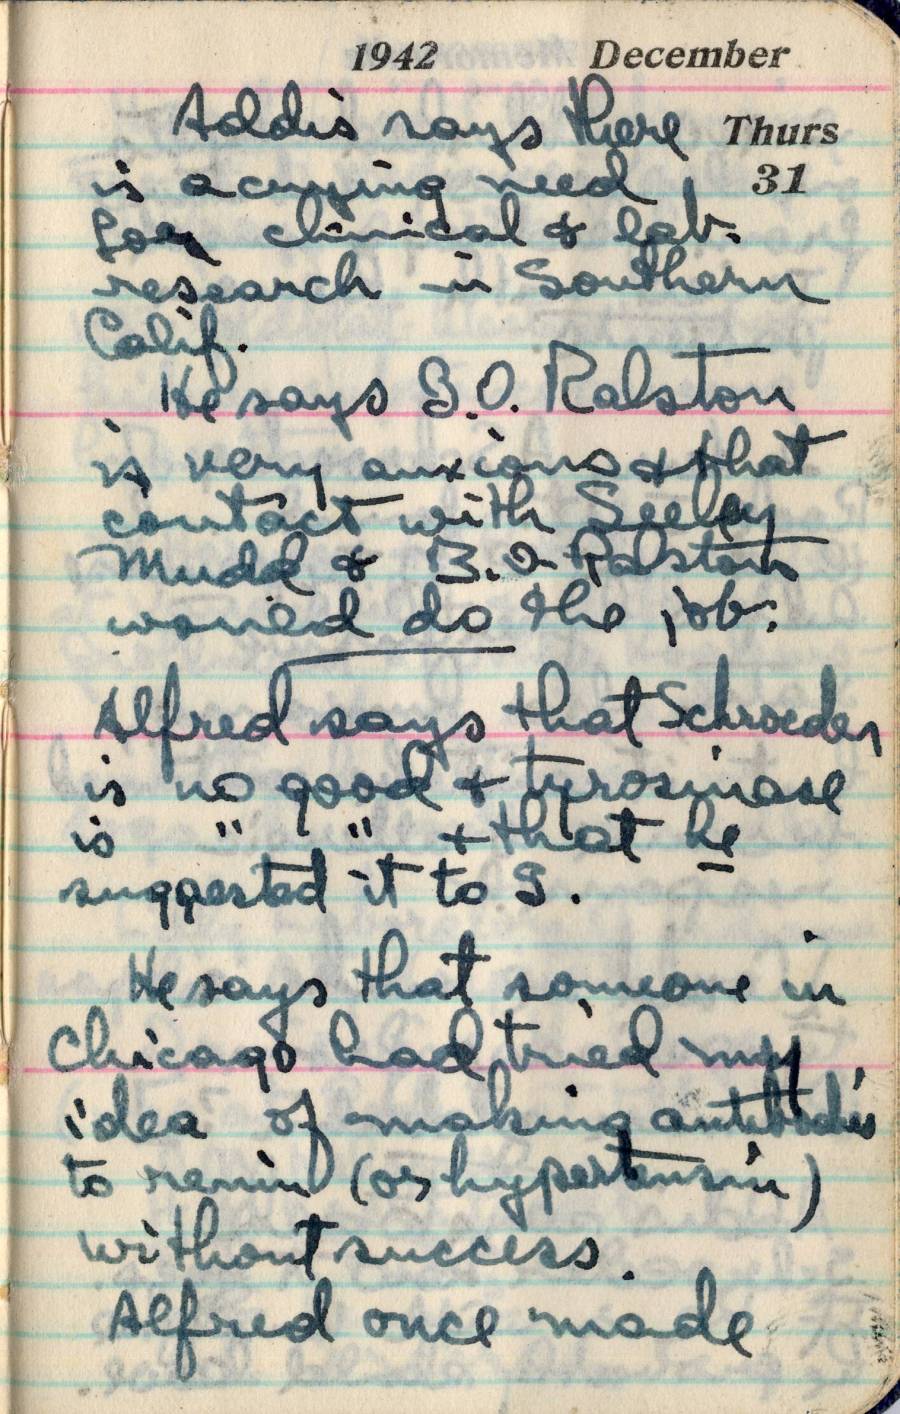 1942 December
Addis says there Thurs
is a crying need 31
for clinical & lab.
research in Southern
Calif.
He says B.O. Ralston
is very anxious & that
contact with Seeley
Mudd & B.O. Ralston
would do the job.
Alfred says that Schroeder
is no good & tyrosinase
is " " & that he
suggested it to S.
He says that someone in
Chicago had tried my
idea of making antibodies
to renin (or hypertensin)
without success.
Alfred once made